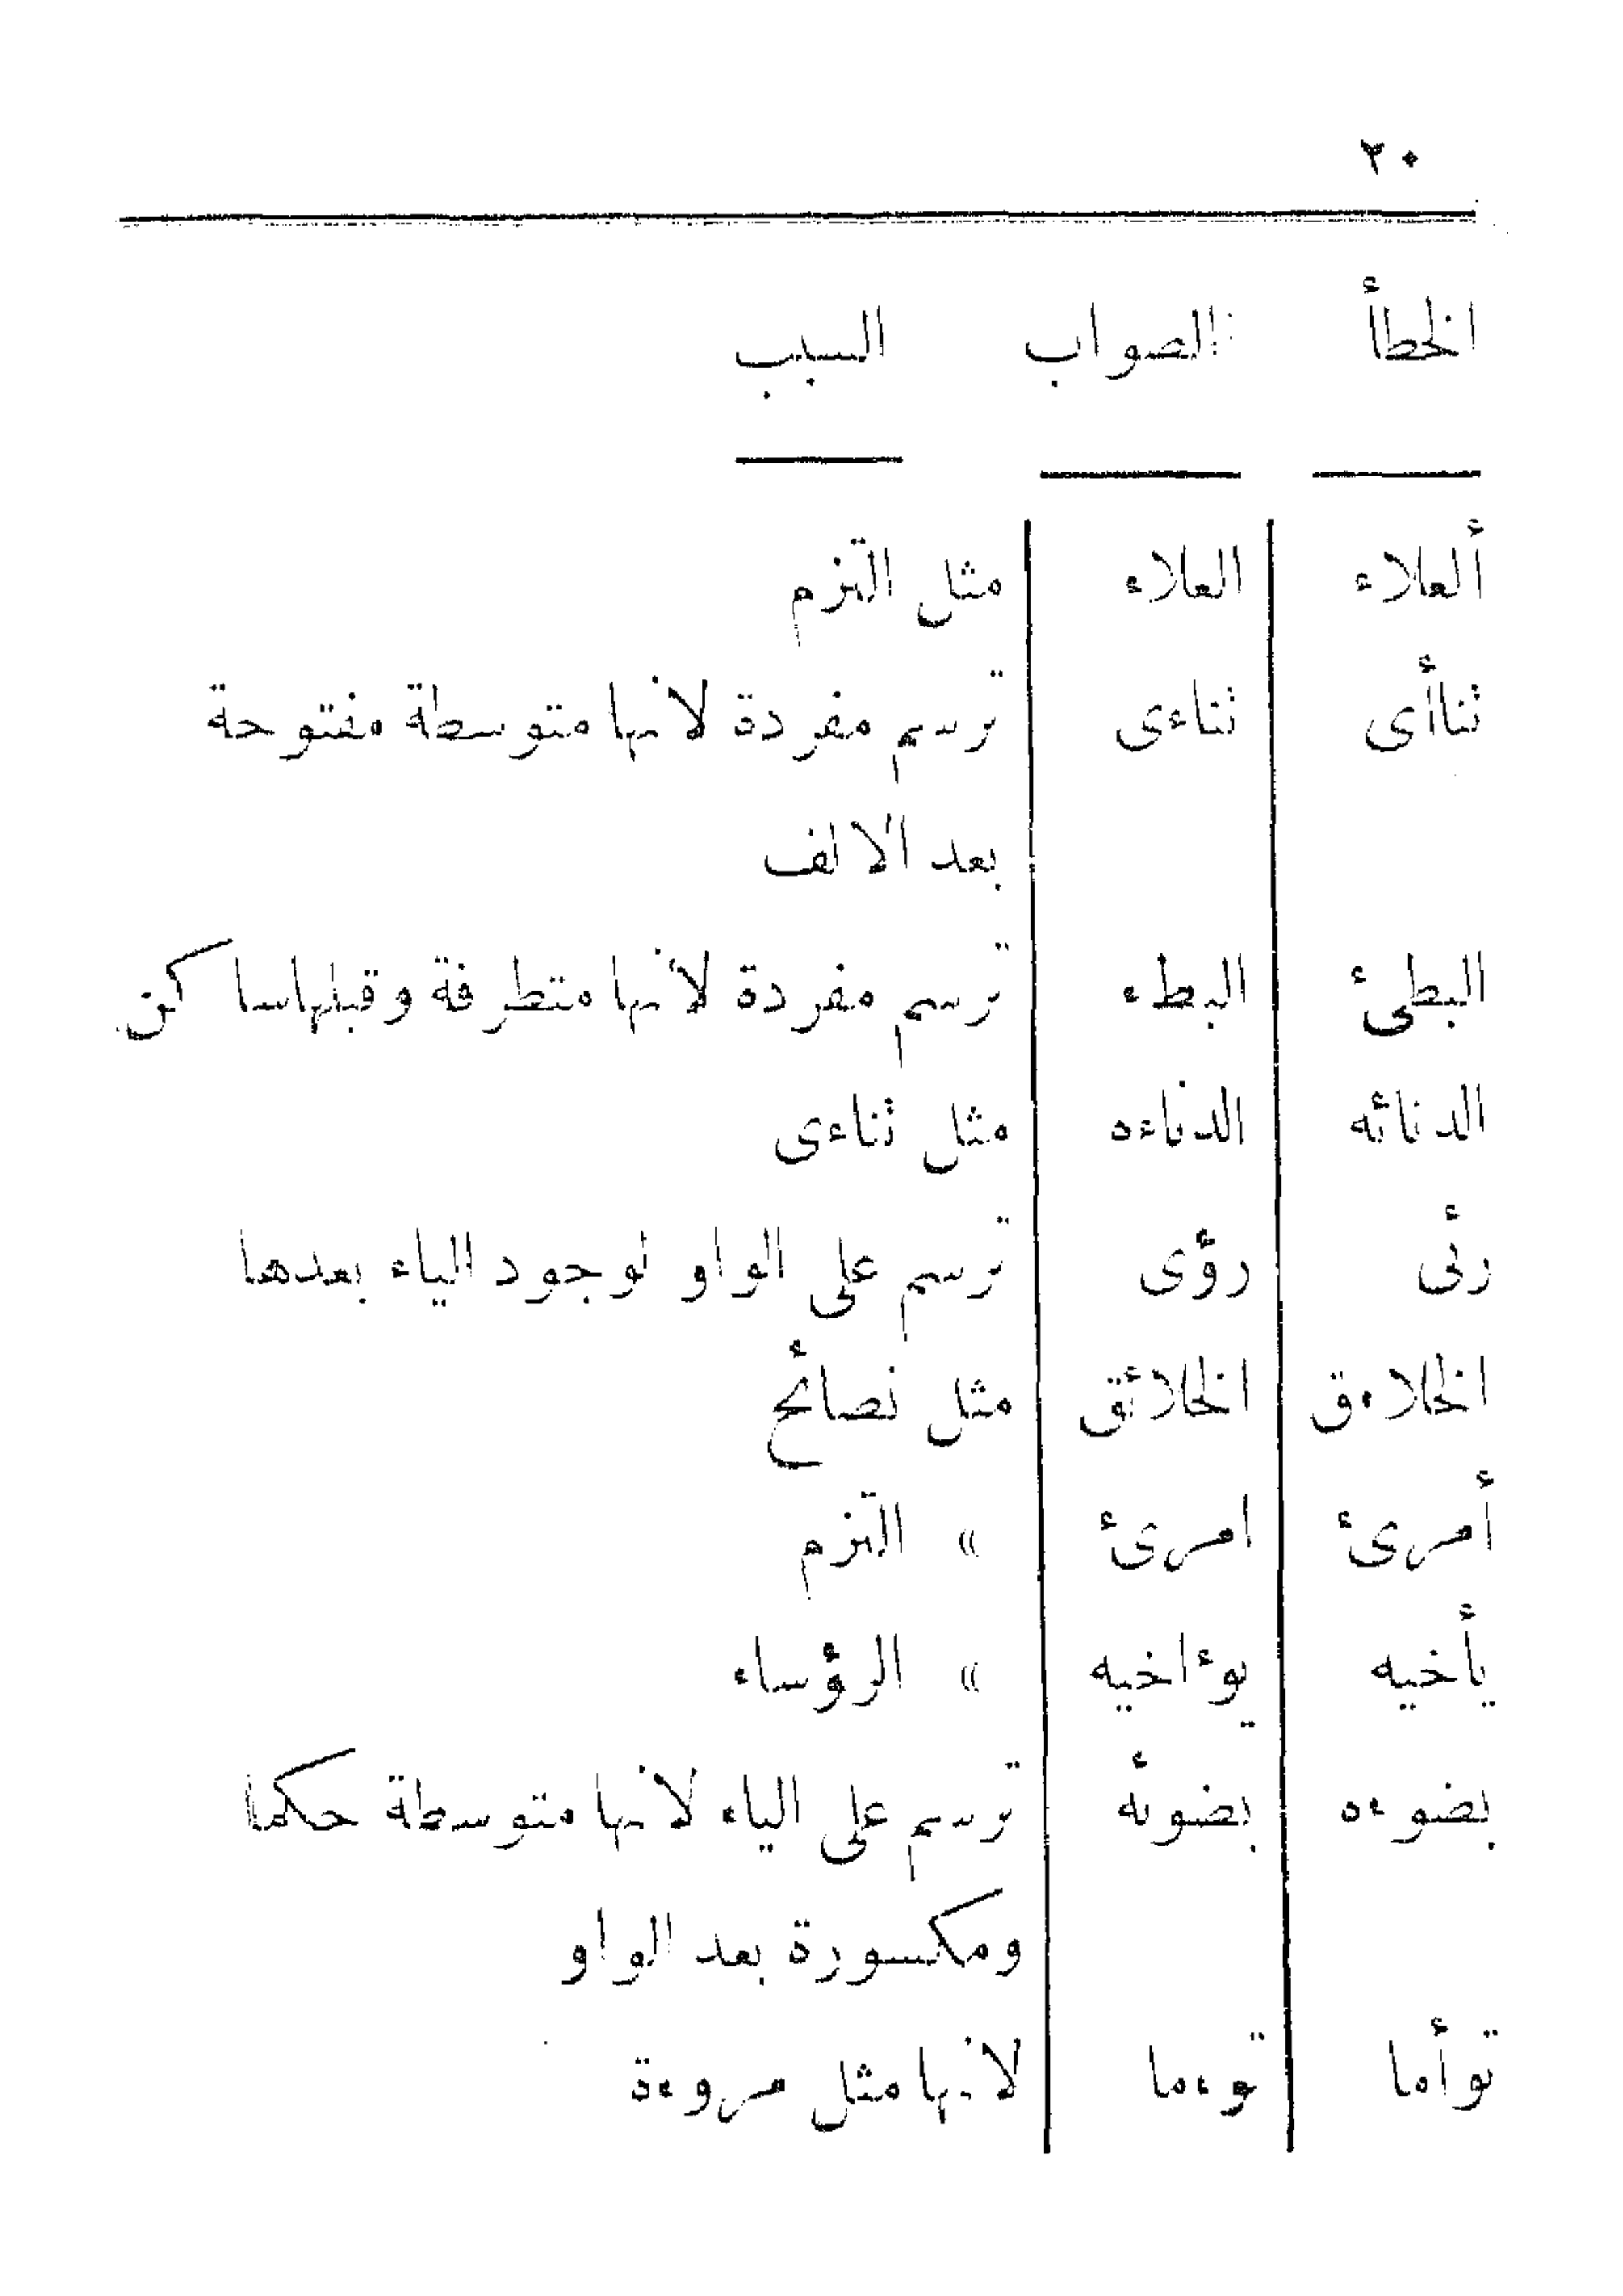 ٢٠
الخطأ الصواب السبب
ألعلاء العلاء مثل التزم
ثناأى ثناءى ترسم مفردة لانها متوسطة مفتوحة
بعد الالف
البطئ البطء ترسم مفردة لأنها متطرفة وقبلها ساكن
الدنائه الدناءه مثل ثناءى
رئى رؤى ترسم على الواو لوجود الياء بعدها
الخلاءق الخلائق مثل نصائح
أمرئ امرئ » التزم
يأخيه يوءاخيه » الرؤساء
بضوءه بضوئه ترسم على الياء لانها متوسطة حكما
ومكسورة بعد الواو
توأما توءما لانها مثل مروءة